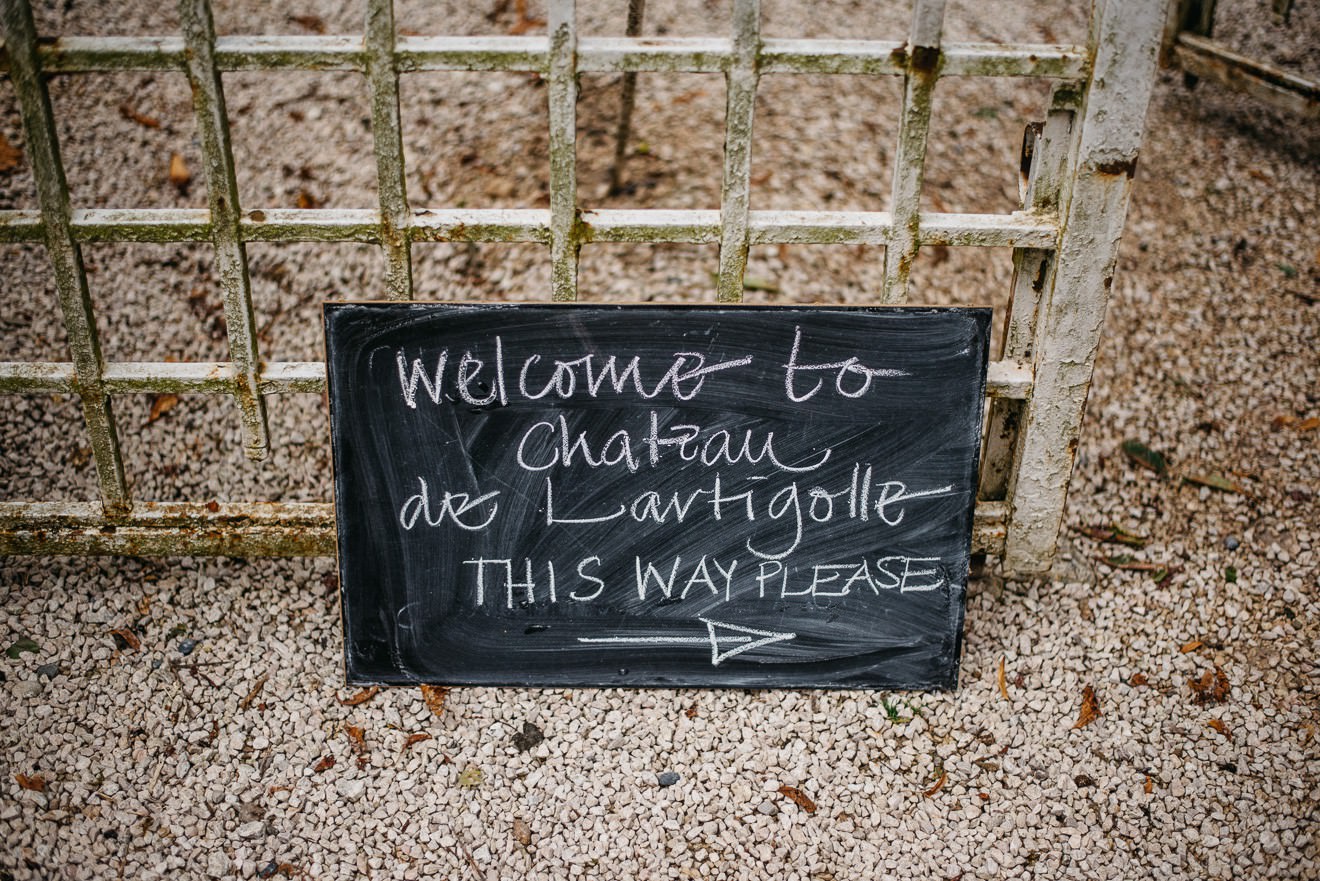 Welcome to
Chateau
de Lartigolle
THIS WAY PLEASE